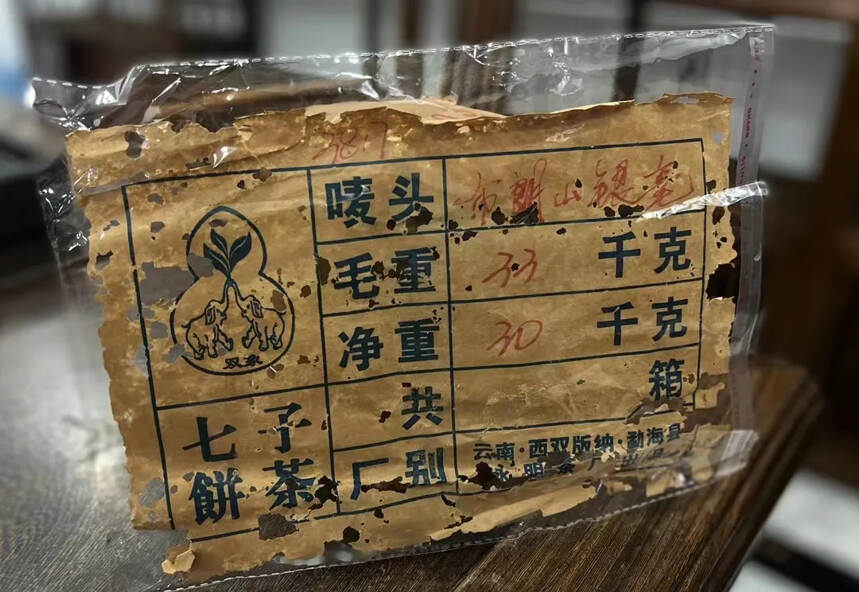 唛头 布朗山银毫
毛重 33 千克
净重 30 千克
共 箱
双象
七子
餅茶
厂别 云南·西双版纳·勐海县
永明茶厂出品